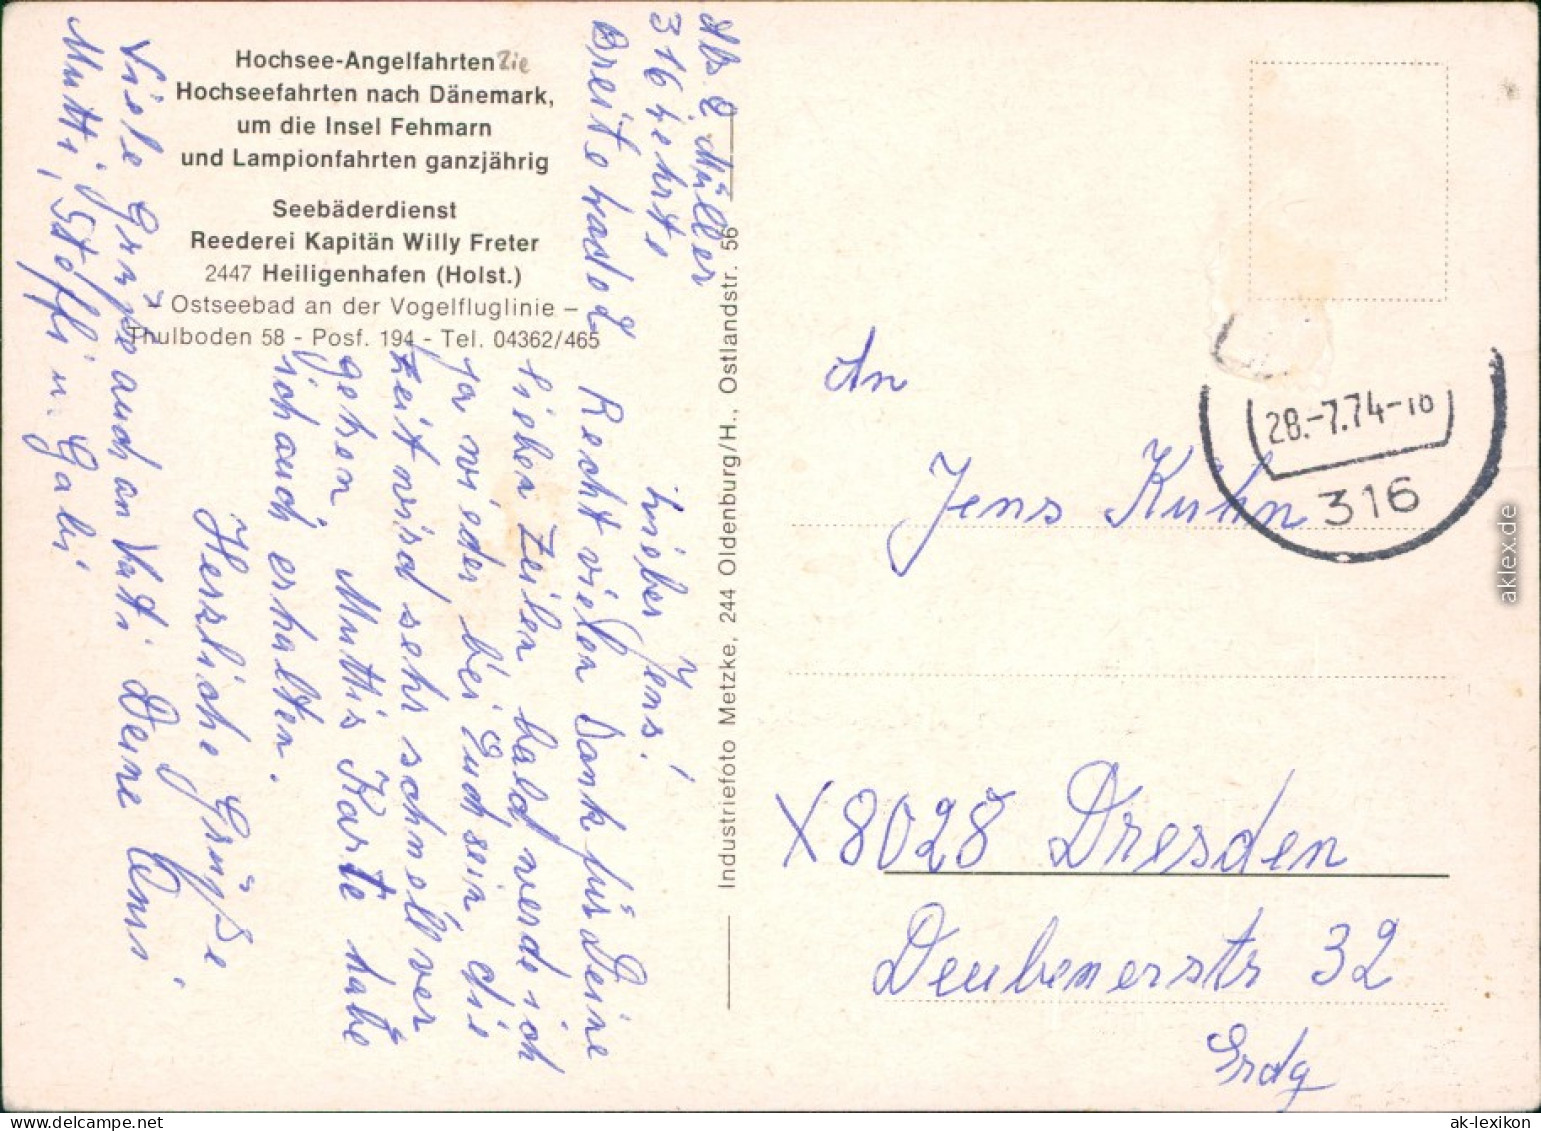 Hochsee-Angelfahrten Zie
Hochseefahrten nach Dänemark,
um die Insel Fehmarn
und Lampionfahrten ganzjährig
Seebäderdienst
Reederei Kapitän Willy Freter
2447 Heiligenhafen (Holst.)
- Ostseebad an der Vogelfluglinie -
Thulboden 58 - Posf. 194 - Tel. 04362/465
Industriefoto Metzke, 244 Oldenburg/H., Ostlandstr. 56
Müller
316
Lieber Jens!
Recht vielen Dank für Deine
lieben Zeilen bald werde ich
ja wieder bei Euch sein die
Zeit wird sehr schnell ver
gehen. Muttis Karte habe
ich auch erhalten.
Herzliche Grüße
Deine Omi
Viele Grüße auch an Vati
Mutti, Steffi u. Gabi
An
Jens Kuhn
X8028 Dresden
Deubenerstr 32
28.-7.74-18
316
aklex.de
ak-lexikon